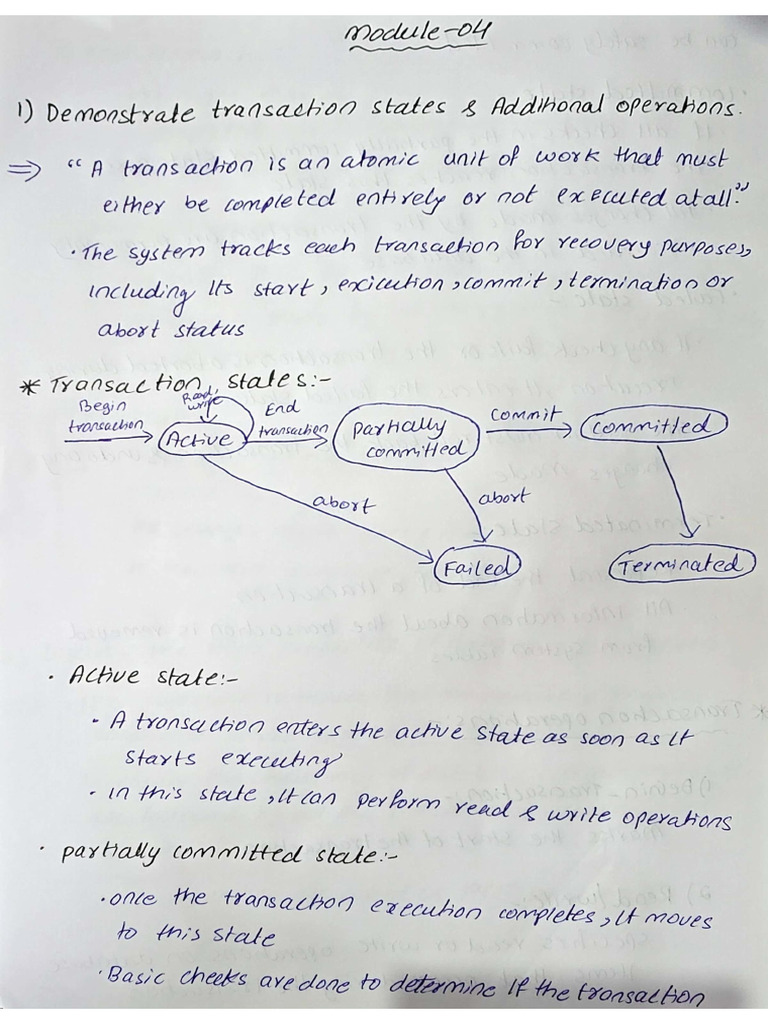 Module-04
1) Demonstrate transaction states & Additional operations.
⇒ "A transaction is an atomic unit of work that must
either be completed entirely or not executed at all."
· The system tracks each transaction for recovery purposes,
including Its start, exicution, commit, termination or
abort status
* Transaction states:-
Begin
transaction
Read,
write
Active
End
transaction
partially
committed
commit
committed
abort
abort
Failed
Terminated
· Active state:-
· A transaction enters the active state as soon as It
starts executing
· In this state, It can perform read & write operations
· partially committed state:-
· once the transaction execution completes, It moves
to this state
· Basic checks are done to determine If the transaction